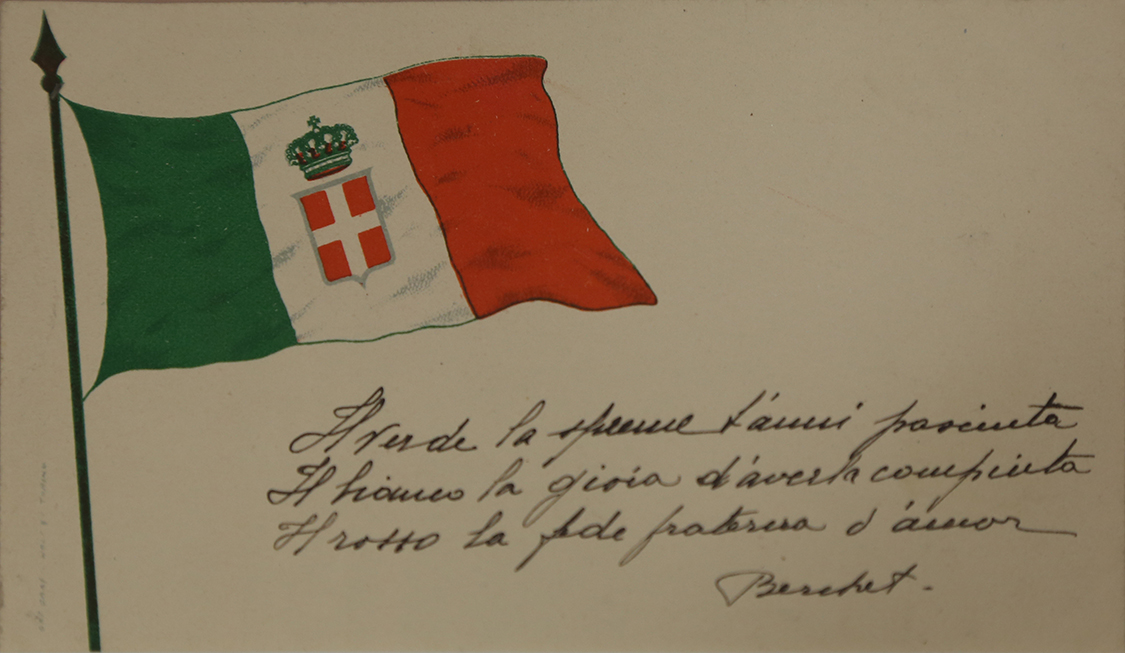 Il verde la speme d'anni pasciuta
Il bianco la gioia d'averla compiuta
Il rosso la fede fraterna d'amor
Berchet.